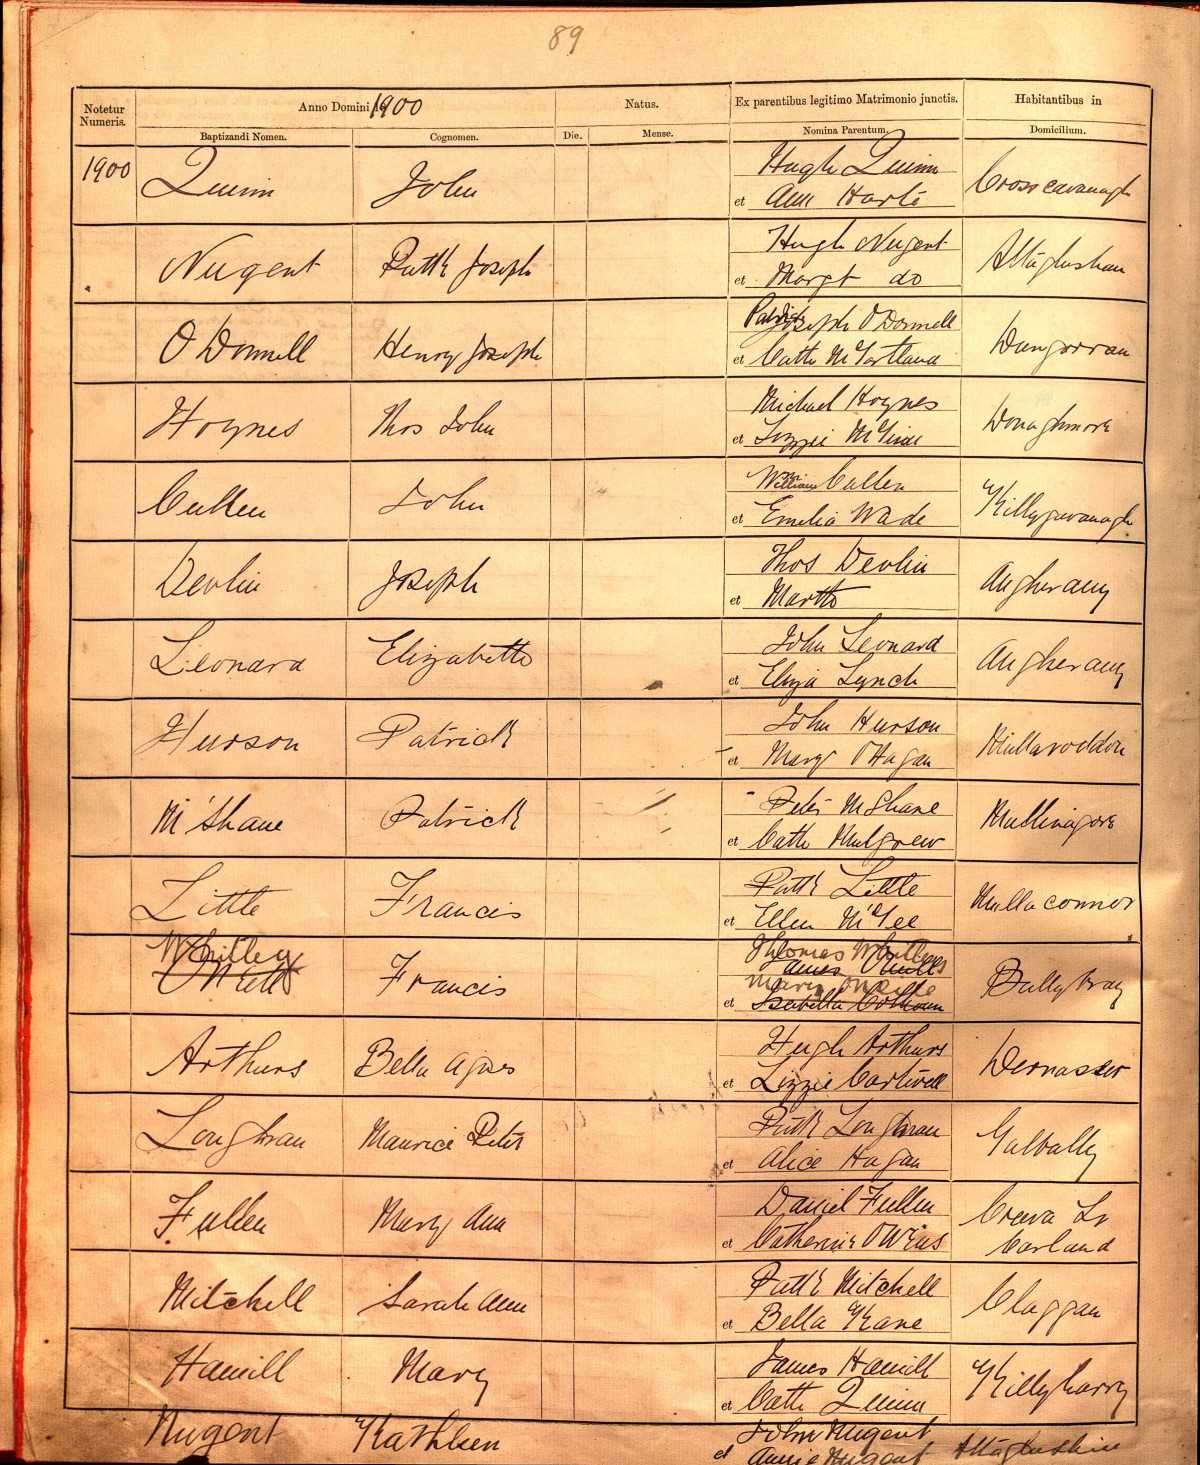 89
Notetur Numeris.
Anno Domini 1900
Natus.
Ex parentibus legitimo Matrimonio junctis.
Habitantibus in
Baptizandi Nomen.
Cognomen.
Die.
Mense.
Nomina Parentum.
Domicilium.
1900 Quinn John Hugh Quinn
et Ann Harte Crosscavanagh
Nugent Patk Joseph Hugh Nugent
et Margt do Altaglushan
O Donnell Henry Joseph Patrick Joseph O Donnell
et Cath McPartland Dungorran
Hoynes Thos John Michael Hoynes
et Lizzie Donaghmore
Cullen John William Cullen
et Emelia Wade Killygavanagh
Devlin Joseph Thos Devlin
et Martha Angheramy
Leonard Elizabeth John Leonard
et Eliza Lynch Angheramy
Hurson Patrick John Hurson
et Mary O Hagan Mullaroddon
McShane Patrick Peter McShane
et Cath Mulgrew Mullinagore
Little Francis Patk Little
et Ellen McGee Mullaconnor
Whitley
O Neill Francis Thomas Whitley
James O Neill
Mary
et Isabella Ballybray
Arthurs Bella Agnes Hugh Arthurs
et Lizzie Dernasser
Loughran Maurice Peter Patk Loughran
et Alice Hagan Galbally
Fullen Mary Ann Daniel Fullen
et Catherine O Weins Creeva
Carland
Mitchell Sarah Ann Patk Mitchell
et Bella Kane Claggan
Hamill Mary James Hamill
et Cath Quinn Killyharry
Nugent Kathleen John Nugent
et Annie Nugent Altaglushin